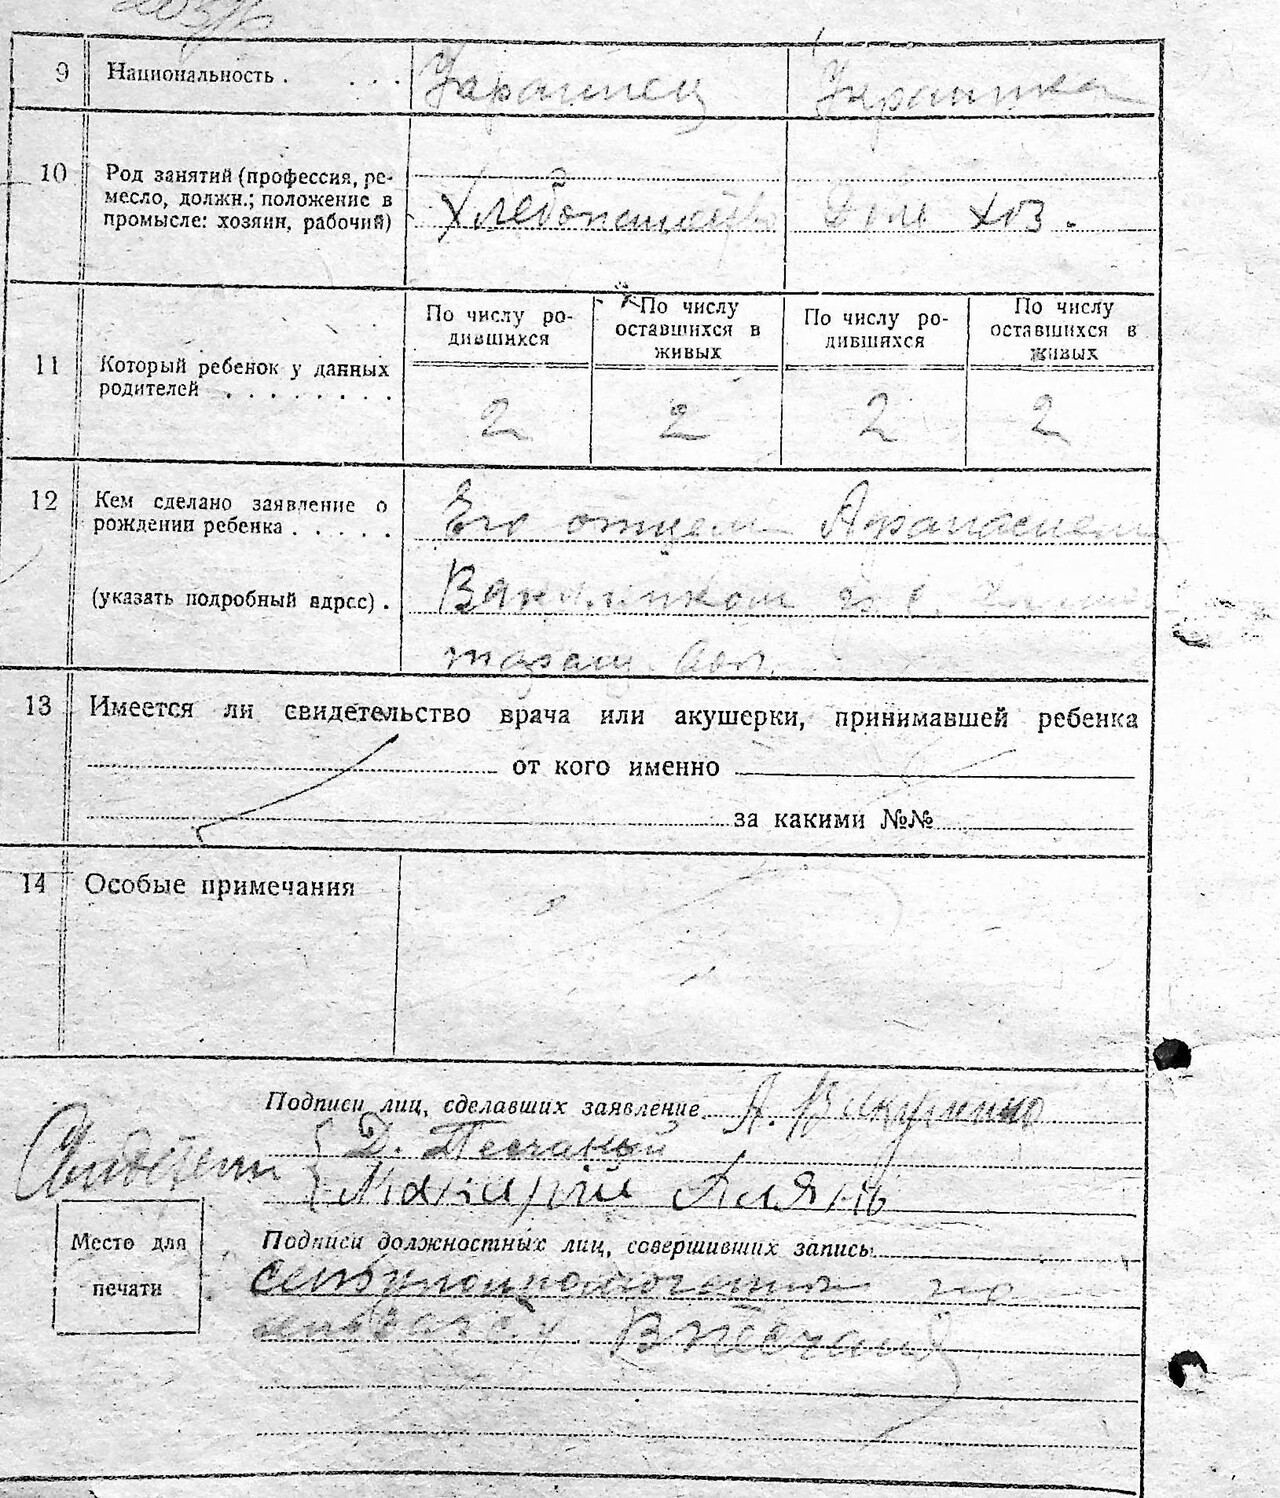 9 Национальность . . . . Украинец Украинка
10 Род занятий (профессия, ре-
месло, должн.; положение в
промысле: хозяин, рабочий)
Хлебопашество Дом хоз.
11 Который ребенок у данных
родителей . . . . . . . .
По числу ро-
дившихся
По числу
оставшихся в
живых
По числу ро-
дившихся
По числу
оставшихся в
живых
2 2 2 2
12 Кем сделано заявление о
рождении ребенка . . . . .
(указать подробный адрес) .
Его отцем Афанасием
13 Имеется ли свидетельство врача или акушерки, принимавшей ребенка
от кого именно
за какими №№
14 Особые примечания
Подписи лиц, сделавших заявление А.
Свидетели Д. Песчаный
Макарий
Место для
печати
Подписи должностных лиц, совершивших запись